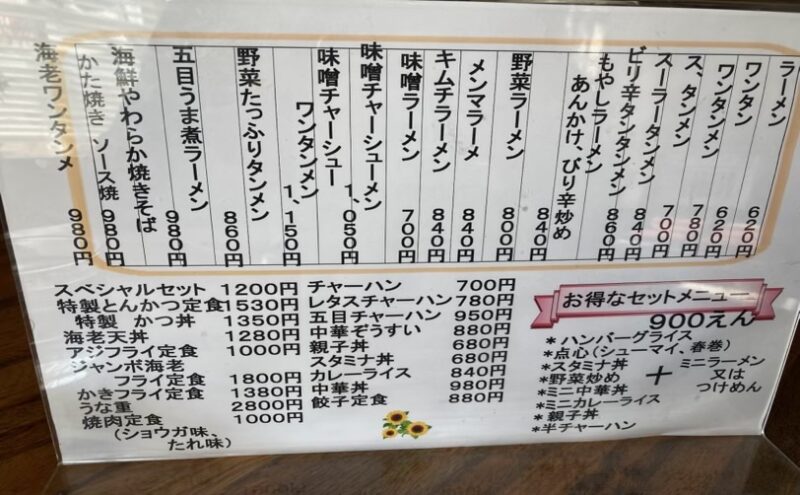 ラーメン
ワンタン 620円
ワンタンメン 620円
ス、タンメン 780円
スーラータンメン 700円
ピリ辛タンタンメン 840円
もやしラーメン 860円
あんかけ、ぴり辛炒め 840円
野菜ラーメン 800円
メンマラーメ 840円
キムチラーメン 840円
味噌ラーメン 700円
味噌チャーシューメン 1,050円
味噌チャーシュー
ワンタンメン 1,150円
野菜たっぷりタンメン 860円
五目うま煮ラーメン 980円
海鮮やわらか焼きそば
かた焼き ソース焼 980円
海老ワンタンメ 980円
スペシャルセット 1200円
特製とんかつ定食 1530円
特製 かつ丼 1350円
海老天丼 1280円
アジフライ定食 1000円
ジャンボ海老
フライ定食 1800円
かきフライ定食 1380円
うな重 2800円
焼肉定食 1000円
(ショウガ味、
たれ味)
チャーハン 700円
レタスチャーハン 780円
五目チャーハン 950円
中華ぞうすい 880円
親子丼 680円
スタミナ丼 680円
カレーライス 840円
中華丼 980円
餃子定食 880円
お得なセットメニュー
900えん
*ハンバーグライス
*点心(シューマイ、春巻)
*スタミナ丼
*野菜炒め
*ミニ中華丼
*ミニカレーライス
*親子丼
*半チャーハン
+
ミニラーメン
又は
つけめん